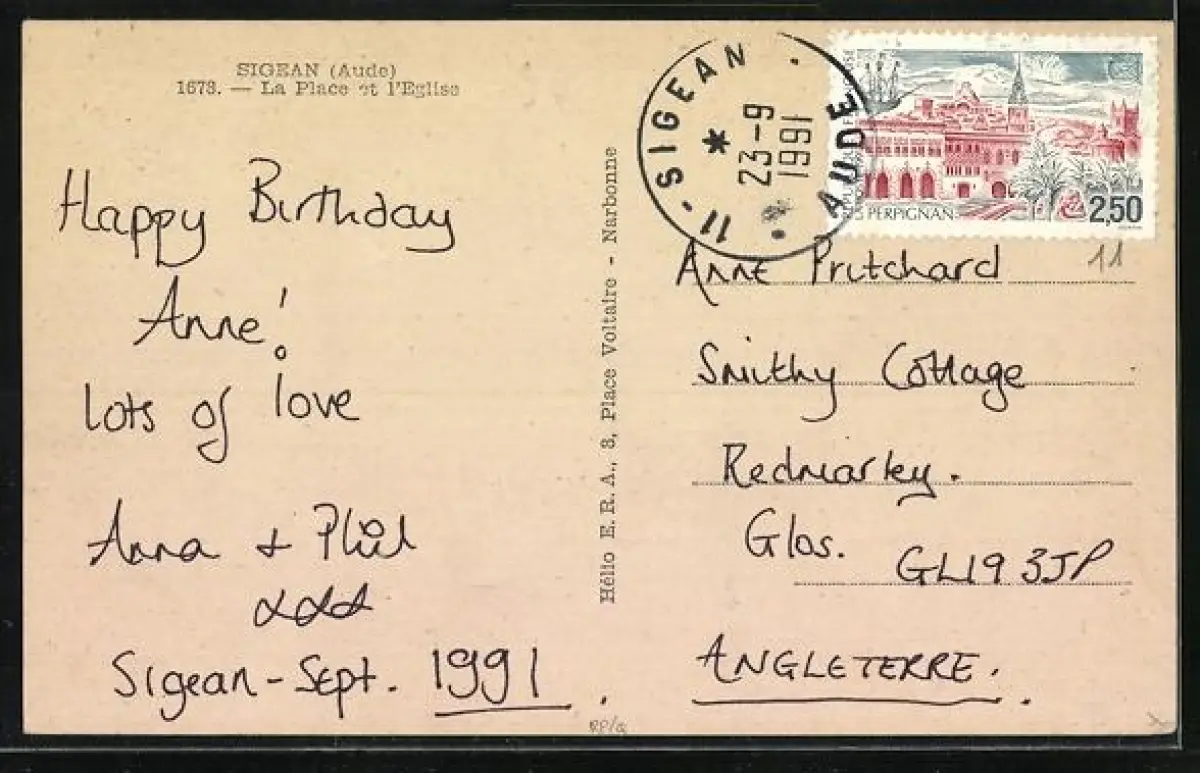 SIGEAN (Aude)
1678. — La Place et l'Eglise
Happy Birthday
Anne!
lots of love
Anna & Phil
xxx
Sigean - Sept. 1991.
Hélio E. R. A., 3, Place Voltaire - Narbonne
11 - SIGEAN
AUDE
23-9
1991
PERPIGNAN
2,50
11
Anne Pritchard
Smithy Cottage
Redmarley.
Glos. GL19 3JP
ANGLETERRE.